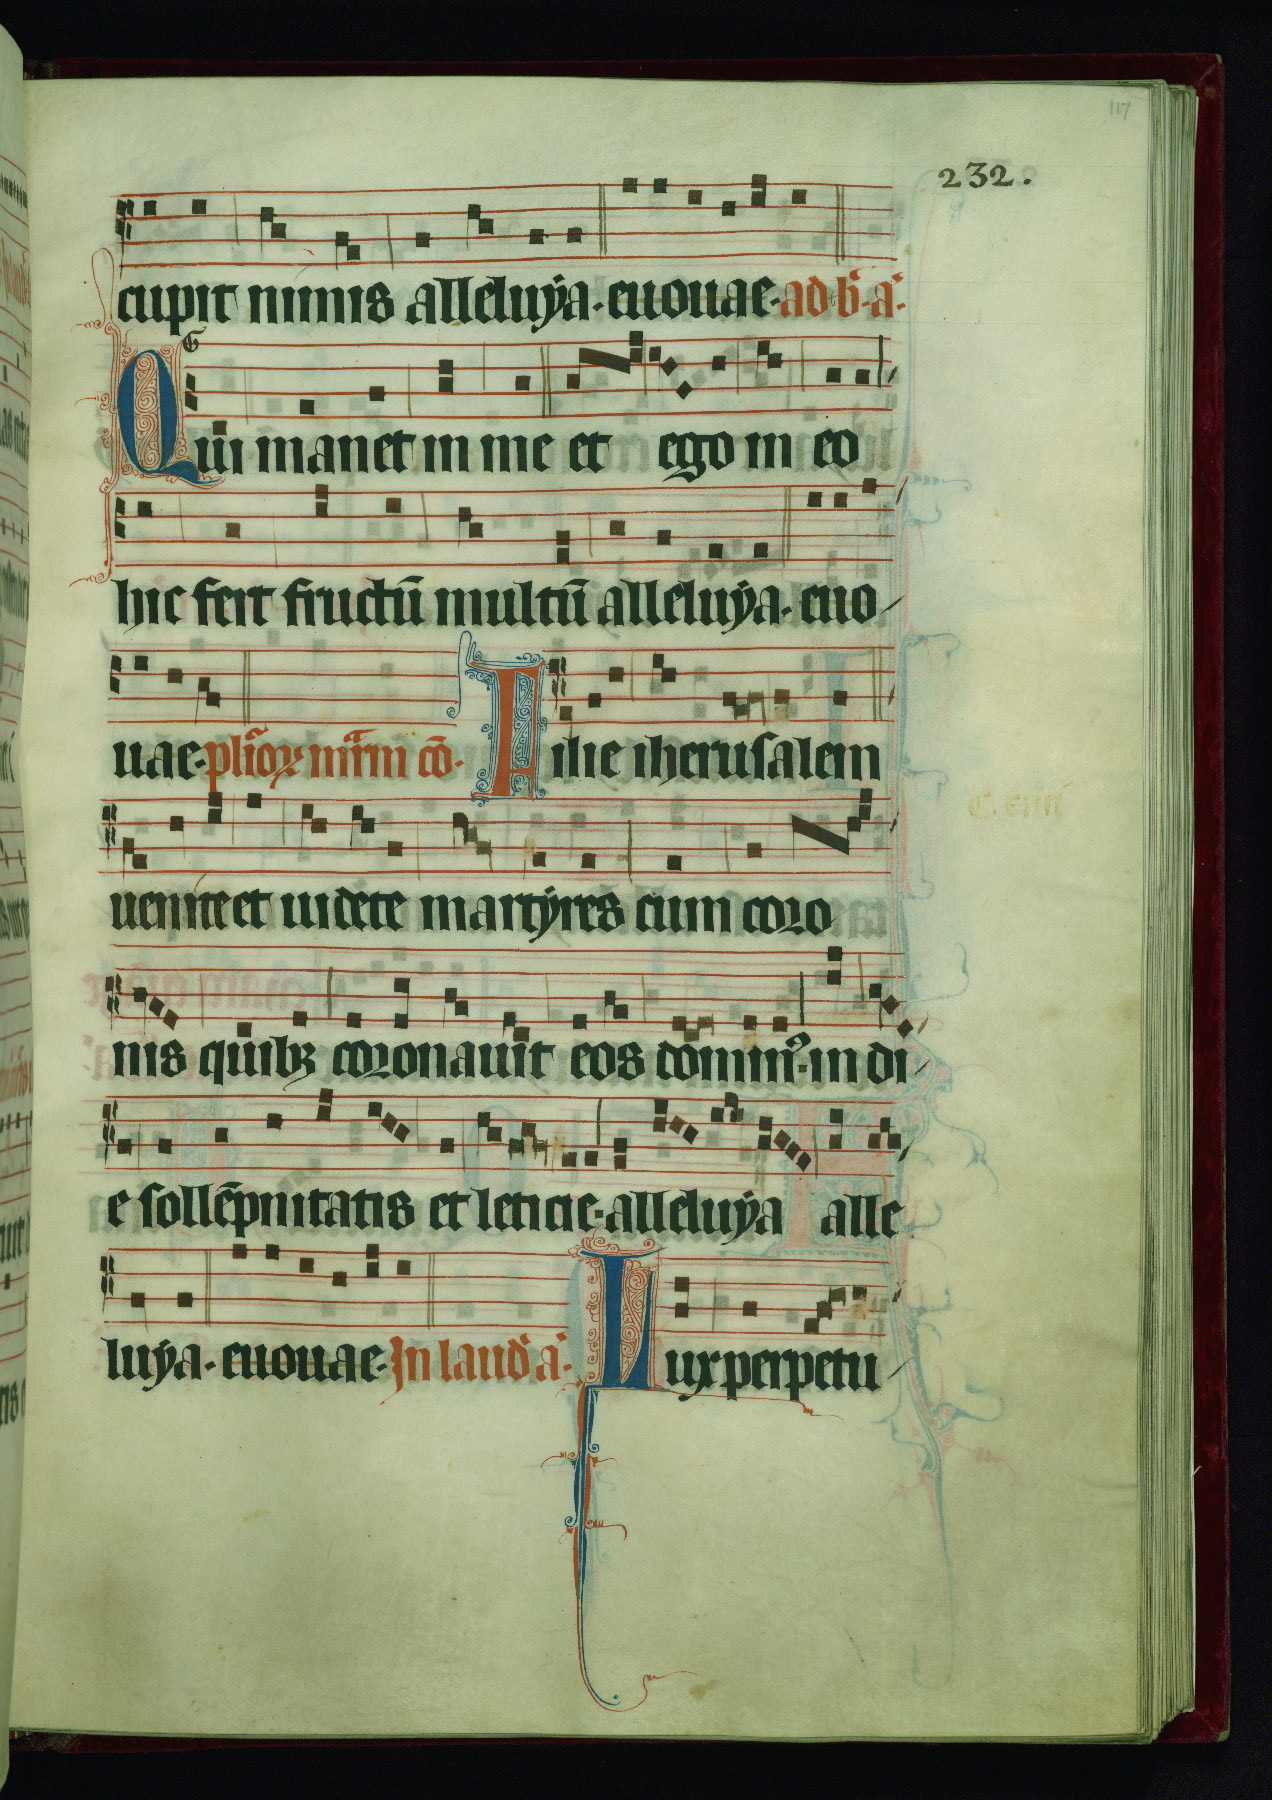 117
232.
cupit nimis alleluẏa. euouae. ad b. a.
G
Qui manet in me et ego in eo
hic fert fructū multū alleluẏa. euo
uae. plīoꝝ mr̄m cō. Filie iherusalem
uenite et uidete martẏres cum coro
nis quibꝫ coronauit eos dominꝰ. in di
e sollēpnitatis et leticie. alleluẏa alle
luẏa. euouae. In laud a. Lux perpetu